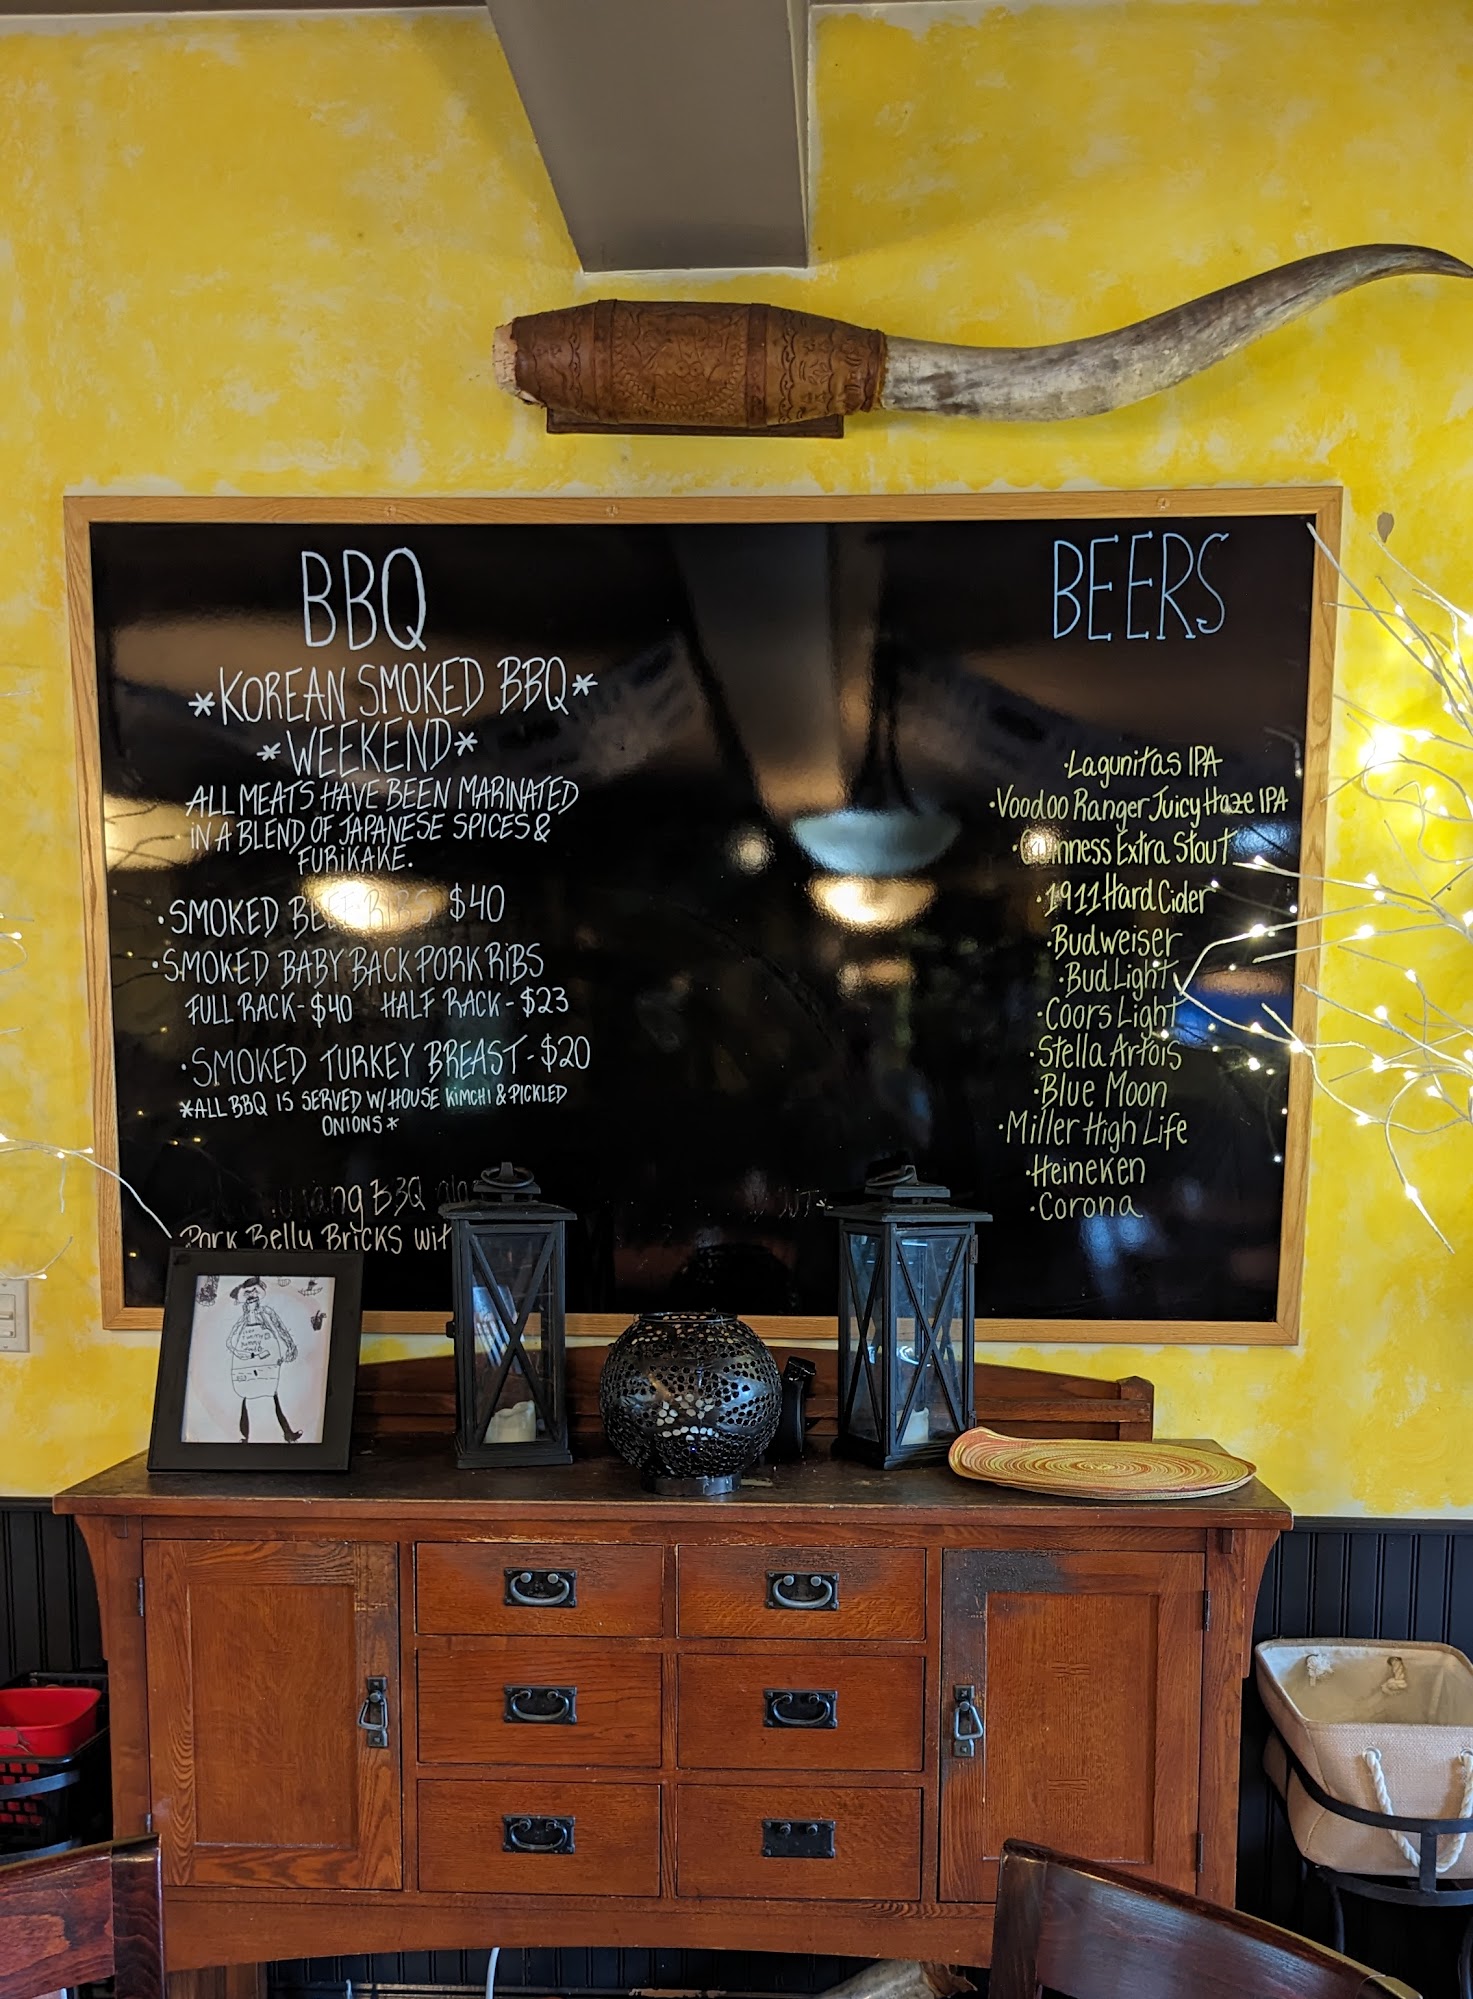 BBQ
*KOREAN SMOKED BBQ*
*WEEKEND*
ALL MEATS HAVE BEEN MARINATED
IN A BLEND OF JAPANESE SPICES &
FURIKAKE.
·SMOKED BEEF RIBS $40
·SMOKED BABY BACK PORK RIBS
FULL RACK-$40 HALF RACK-$23
·SMOKED TURKEY BREAST-$20
*ALL BBQ IS SERVED W/HOUSE KIMCHI & PICKLED
ONIONS*
BBQ
Pork Belly Bricks
BEERS
·Lagunitas IPA
·Voodoo Ranger Juicy Haze IPA
·Guinness Extra Stout
·1911 Hard Cider
·Budweiser
·Bud Light
·Coors Light
·Stella Artois
·Blue Moon
·Miller High Life
·Heineken
·Corona